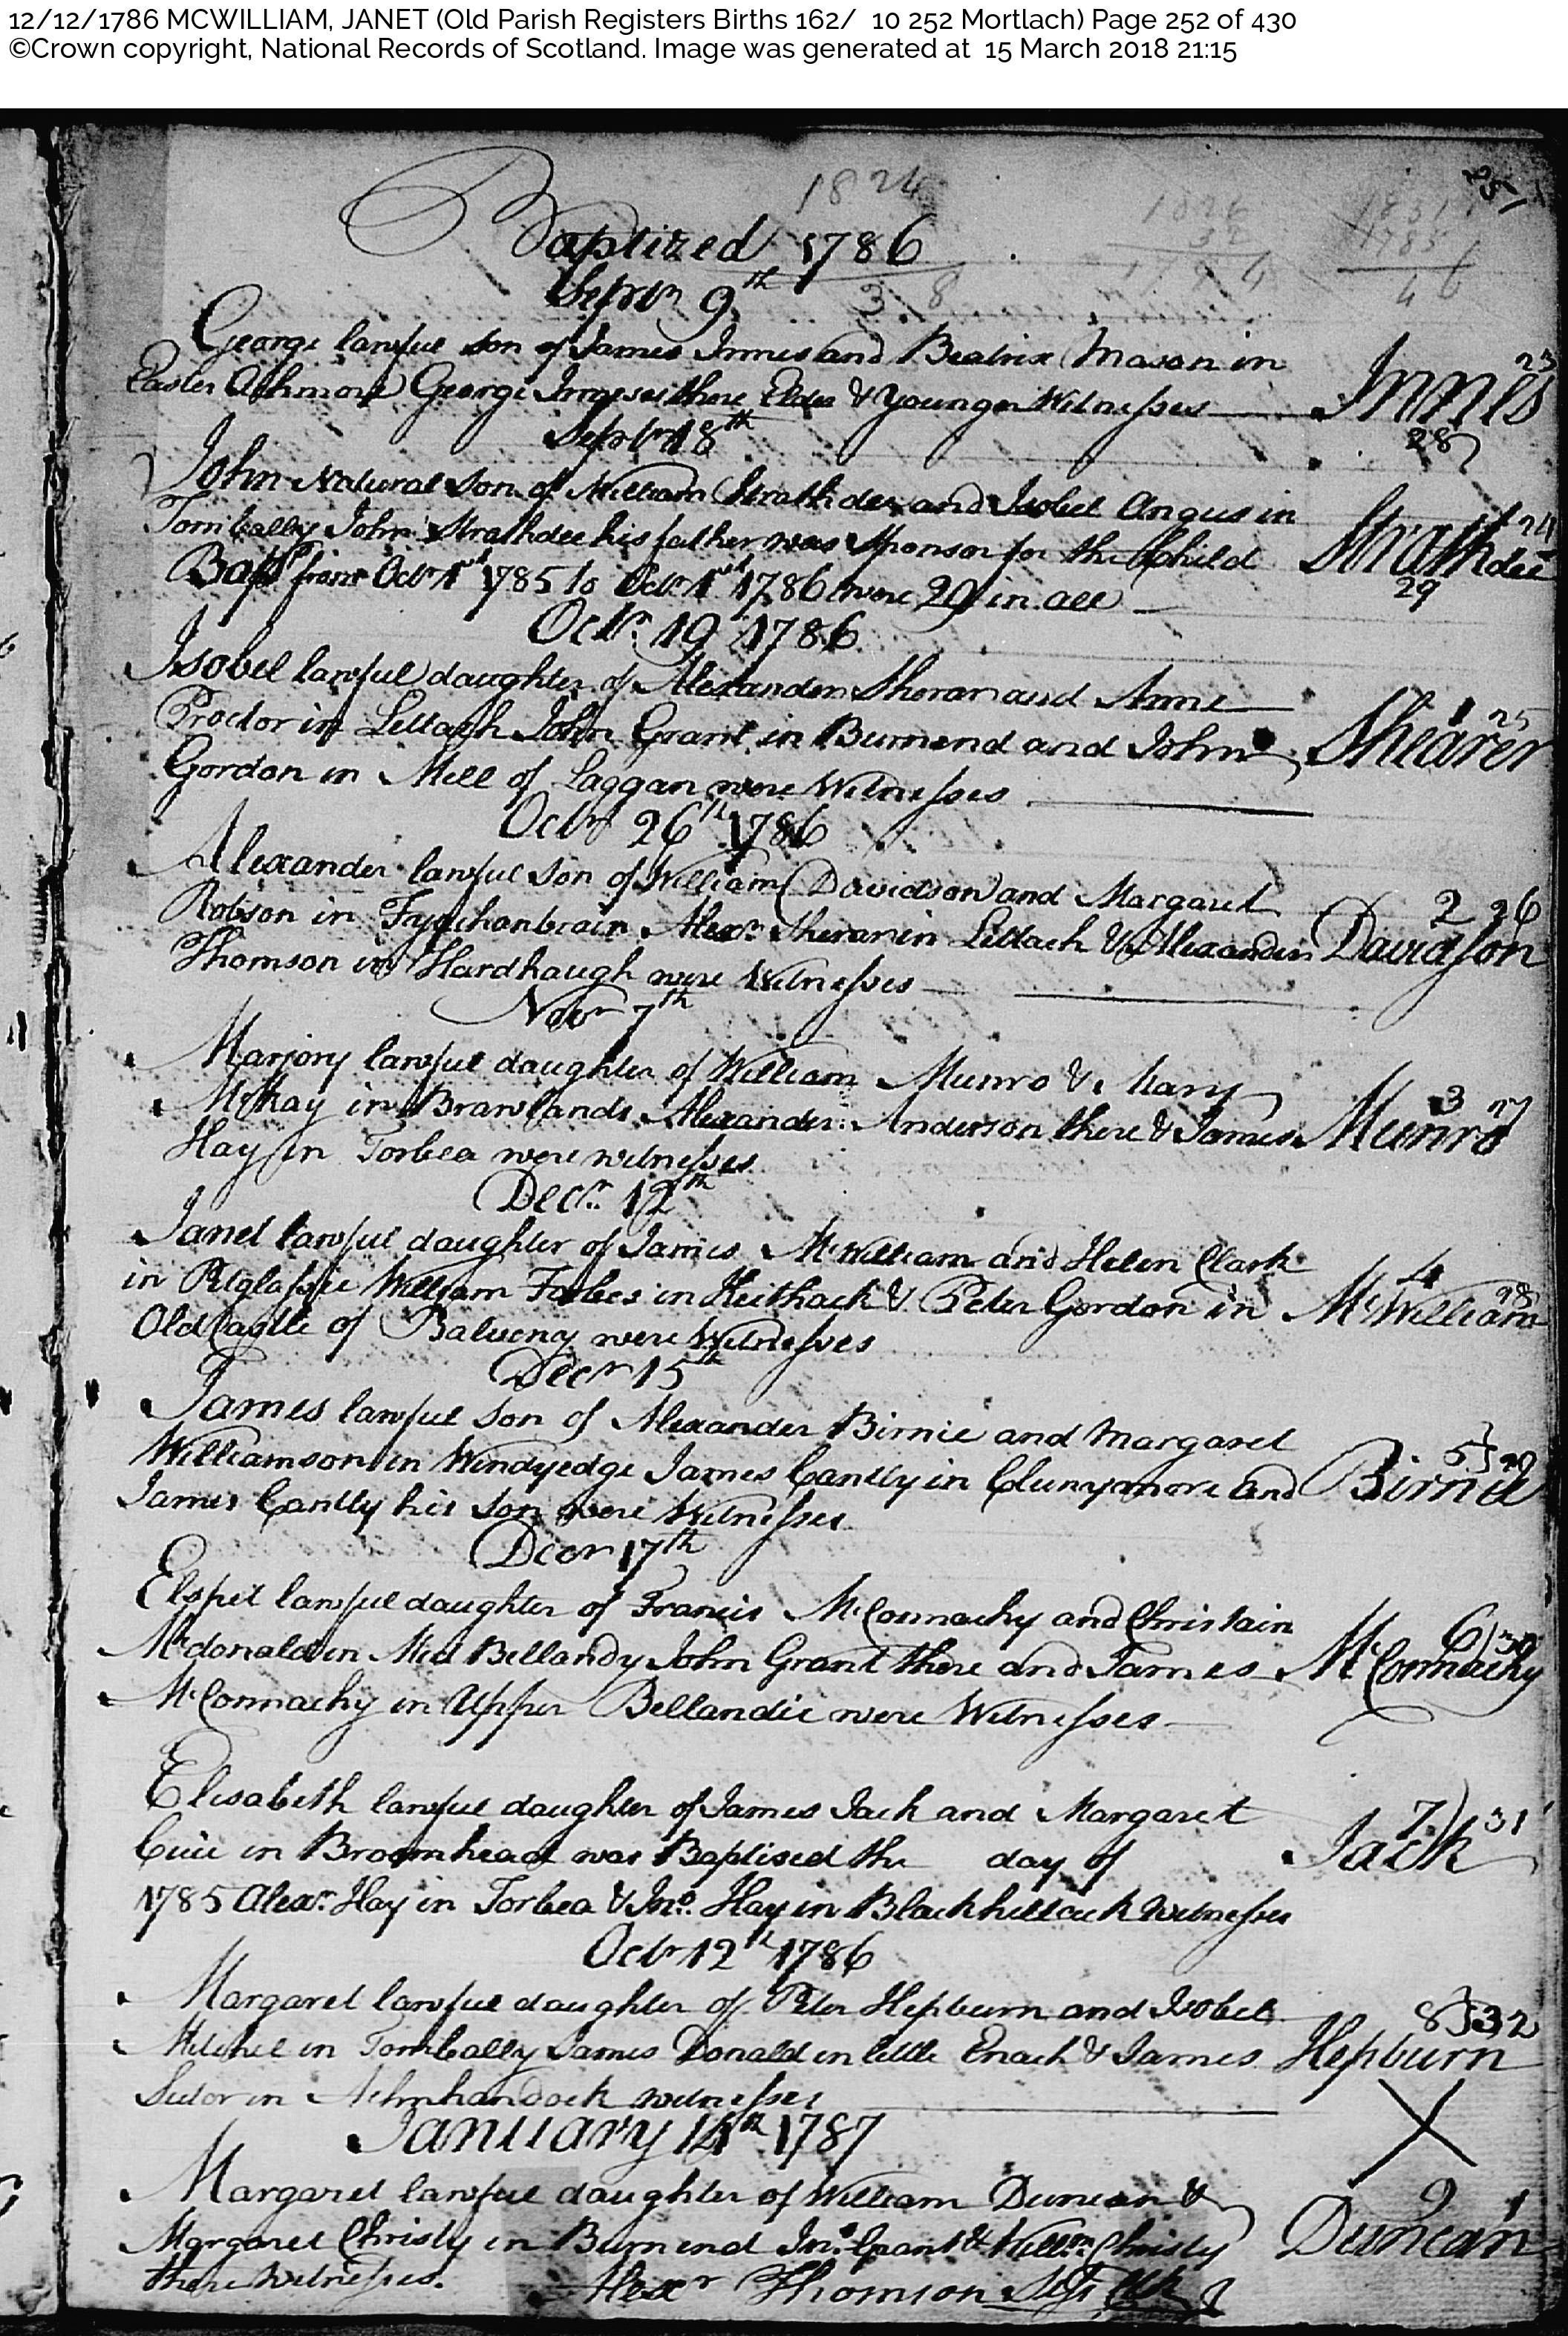 12/12/1786 MCWILLIAM, JANET (Old Parish Registers Births 162/ 10 252 Mortlach) Page 252 of 430
©Crown copyright, National Records of Scotland. Image was generated at 15 March 2018 21:15
251
1824
Baptized 1786
Septr 9th
George lawful son of James Innes and Beatrix Mason in
Easter George there Elder & Younger Witnesses Innes 23
28
Septr 18th
John Natural Son of William Strathdee and Isobel Angus in
Tombally John Strathdee his father was Sponsor for the Child Strathdee 24
Bapt from Octr 1st 1785 to Octr 1st 1786 were 29 in all 29
Octr. 19 1786
Isobel lawful daughter of Alexander Sherar and Anne
Proctor in Lettach John Grant in Burnend and John Shearer 1 25
Gordon in Mill of Laggan were Witnesses
Octr 26th 1786
Alexander lawful Son of William Davidson and Margaret
Robson in Alexr. Sherar in Lettach & Alexander Davidson 2 26
Thomson in Hardhaugh were Witnesses
Novr 7th
Marjory lawful daughter of William Munro & Mary
McKay in Brawlands Alexander Anderson there & James Munro 3 27
Hay in Torbea were witnesses
Decr. 12th
Janet lawful daughter of James McWilliam and Helen Clark
in Pitglassie William Forbes in Keithack & Peter Gordon in McWilliam 4 28
Old Castle of Balveny were Witnesses
Decr 15th
James lawful Son of Alexander Birnie and Margaret
Williamson in Windyedge James Cantly in Clunymore and Birnie 5 29
James Cantly his Son were Witnesses
Decr 17th
Elspet lawful daughter of Francis McConnachy and Christain
McDonald in Mid Bellandy John Grant there and James McConnachy 6 30
McConnachy in Upper Bellandie were Witnesses
Elisabeth lawful daughter of James Jack and Margaret
in Broomhead was Baptised the day of Jack 7 31
1785 Alexr. Hay in Torbea & Jno. Hay in Blackhillock Witnesses
Octr 12th 1786
Margaret lawful daughter of Peter Hepburn and Isobel
Mitchel in Tombally James Donald in little Enach & James Hepburn 8 32
Sutor in witnesses
January 14th 1787
Margaret lawful daughter of William Duncan &
Margaret Christy in Burnend Jno. Grant & Willm. Christy Duncan 9 1
there Witnesses.
Alexr Thomson